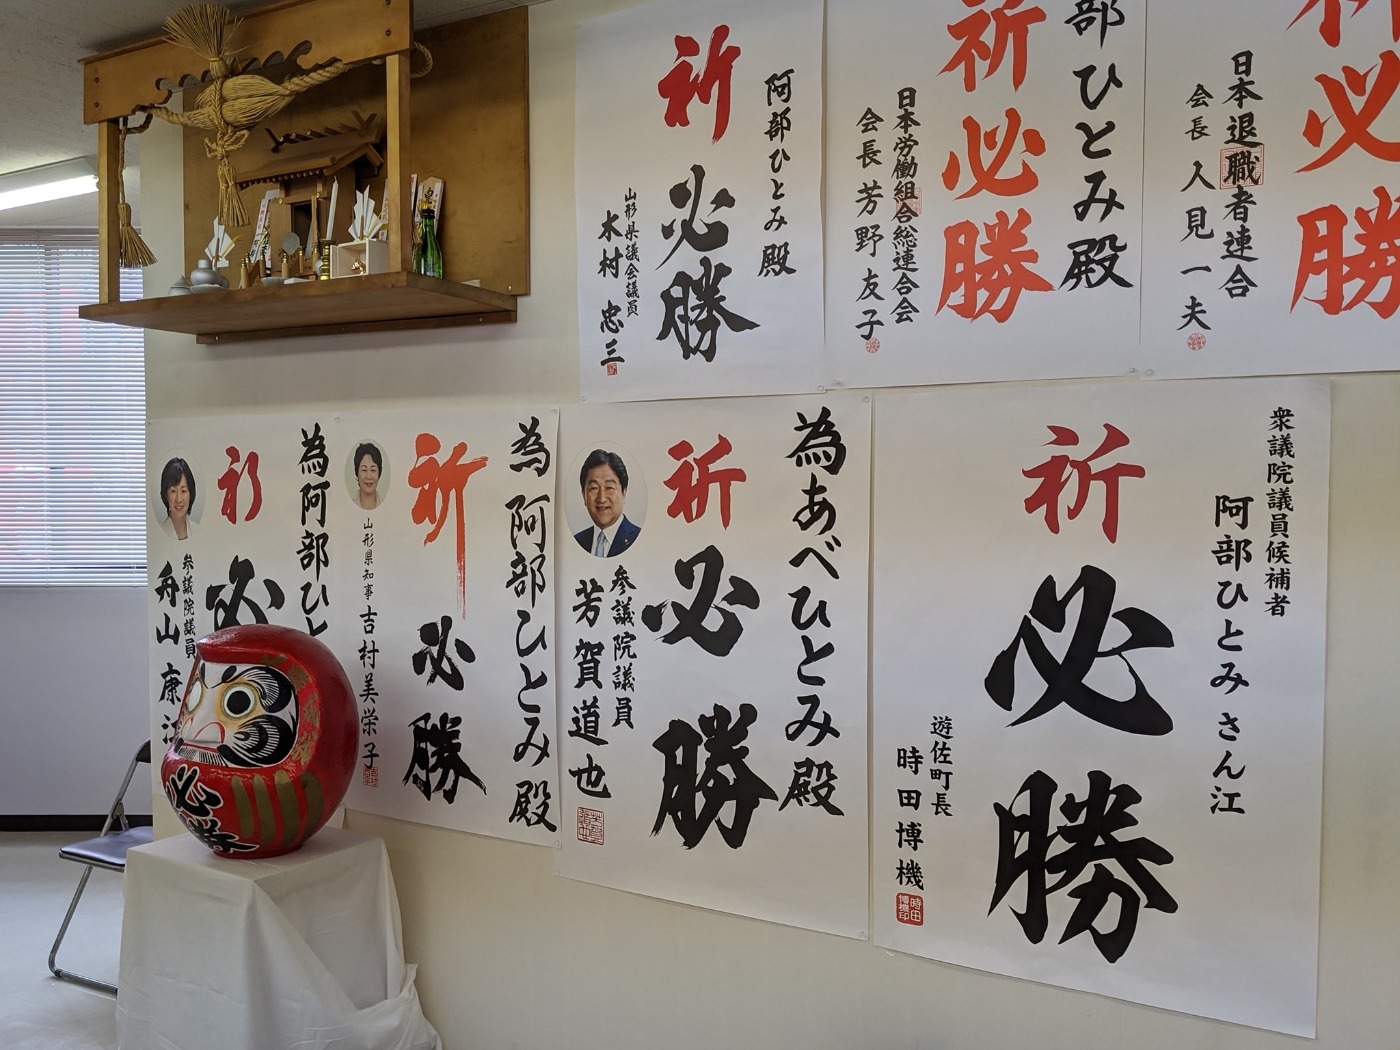 阿部ひとみ殿
祈必勝
山形県議会議員
木村忠三
部ひとみ殿
祈必勝
日本労働組合総連合会
会長 芳野友子
必勝
日本退職者連合
会長 人見一夫
為阿部ひと
祈必
参議院議員
舟山康江
為阿部ひとみ殿
祈必勝
山形県知事 吉村美栄子
為あべひとみ殿
祈必勝
参議院議員
芳賀道也
衆議院議員候補者
阿部ひとみさん江
祈必勝
遊佐町長
時田博機
時田博機印
必勝